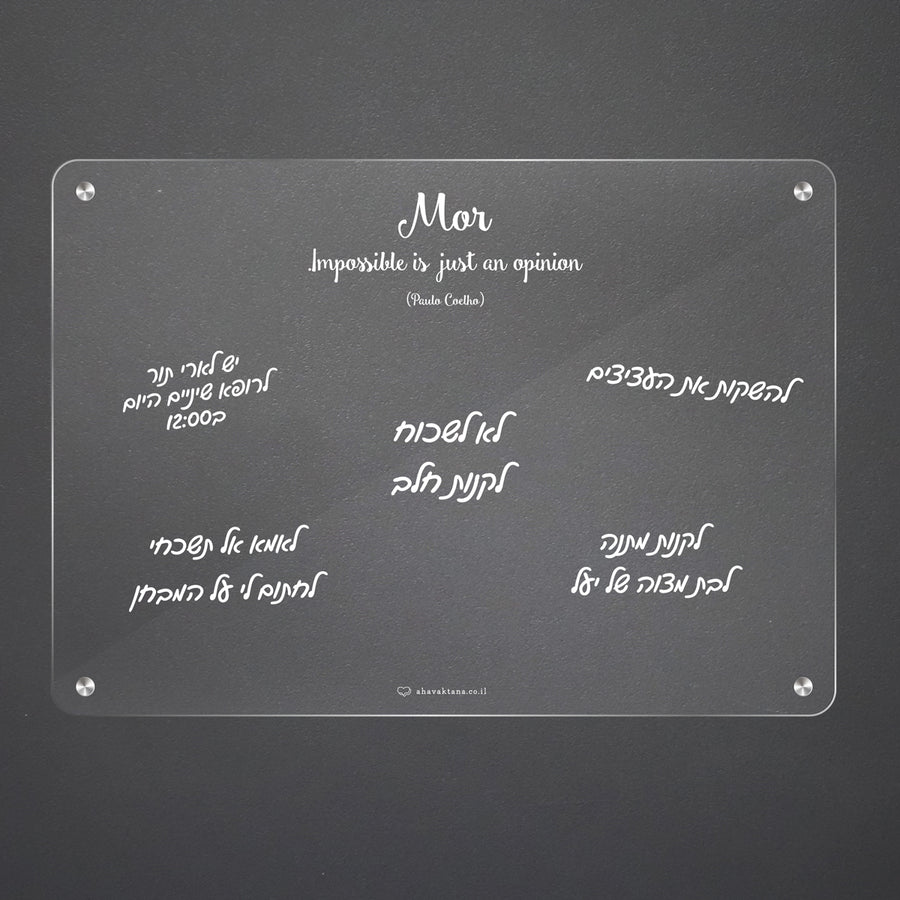 Mor
.Impossible is just an opinion
(Paulo Coelho)
להשקות את העציצים
יש לארי תור
לרופא שיניים היום
ב12:00
לא לשכוח
לקנות חלב
לקנות מתנה
לבת מצוה של יעל
לאמא אל תשכחי
לחתום לי על המבחן
ahavaktana.co.il